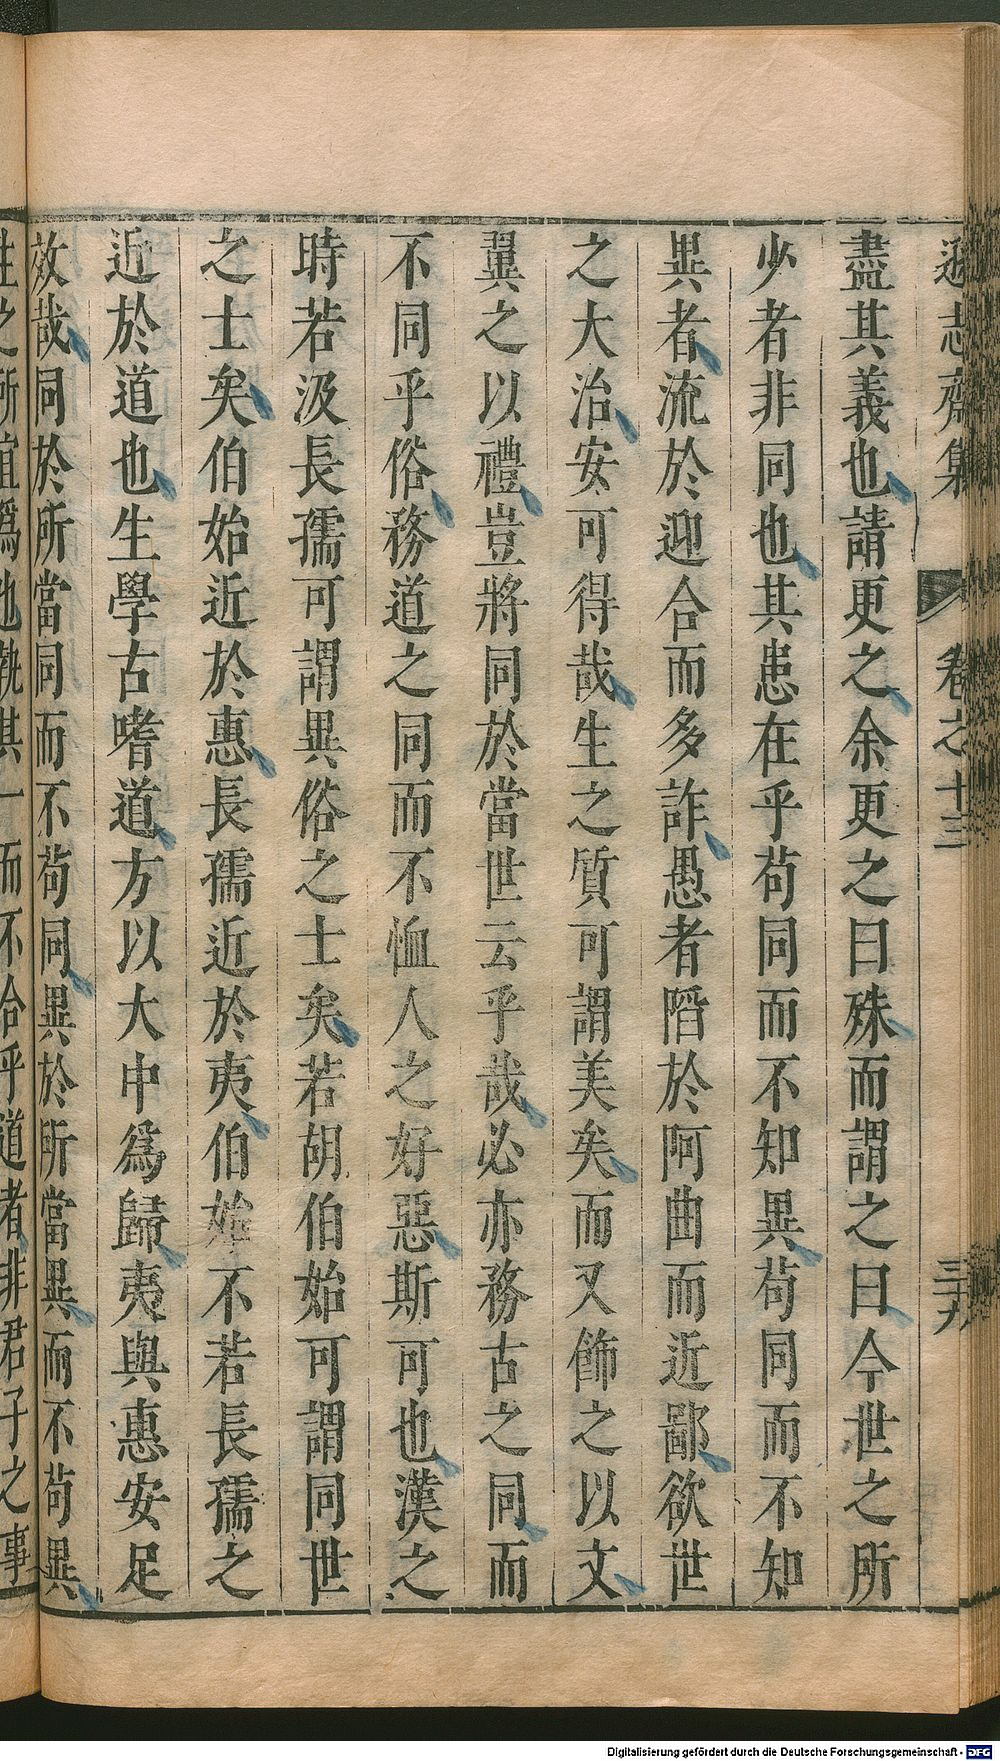 遜志齋集 卷之十三 三十九
盡其義也請更之余更之曰殊而謂之曰今世之所
少者非同也其患在乎苟同而不知異苟同而不知
異者流於迎合而多詐愚者陷於阿曲而近鄙欲世
之大治安可得哉生之質可謂美矣而又飾之以文
翼之以禮豈將同於當世云乎哉必亦務古之同而
不同乎俗務道之同而不恤人之好惡斯可也漢之
時若汲長孺可謂異俗之士矣若胡伯始可謂同世
之士矣伯始近於惠長孺近於夷伯始不若長孺之
近於道也生學古嗜道方以大中為歸夷與惠安足
效哉同於所當同而不苟同異於所當異而不苟異
性之所宜為也執其一而不合乎道者非君子之事
Digitalisierung gefördert durch die Deutsche Forschungsgemeinschaft - DFG